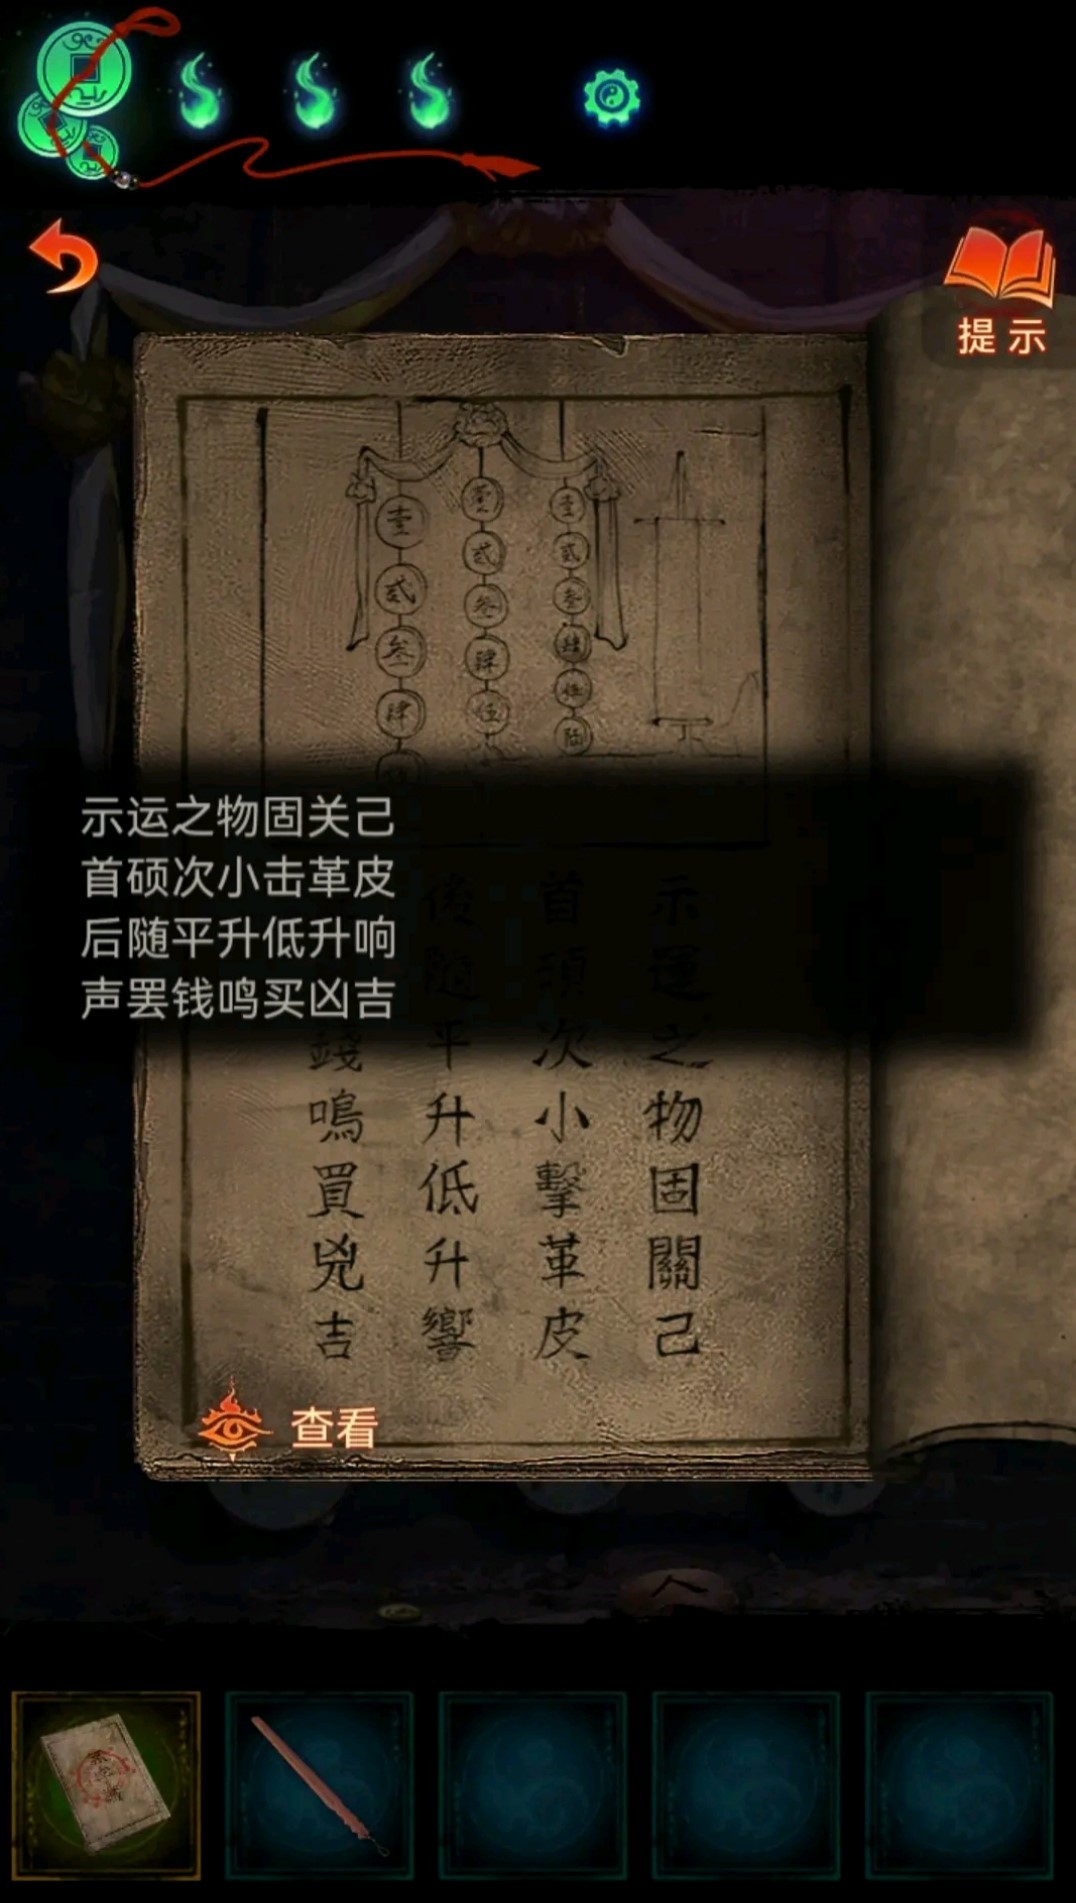 提示
壹
贰
叁
肆
壹
贰
叁
肆
伍
壹
贰
叁
肆
伍
陆
示运之物固关己
首硕次小击革皮
后随平升低升响
声罢钱鸣买凶吉
示運之物固關己
首碩次小擊革皮
後隨平升低升響
錢鳴買兇吉
查看
人